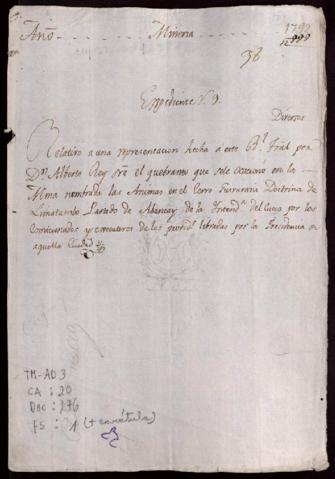 Año Mineria 1799
38
Expediente N. 9.
Diversos
Relativo a una representacion hecha a este Rl. Tribl. por
Dn. Alberto Rey sre. el quebranto que sele ocaciono en la
Mina nombrada las Animas en el Cerro Doctrina de
Limatambo Partido de Abancay de la Intenda. del Cuzco por los
Comicionados y executores de las libradas por la Presidencia en
aquella Ciudad
TM-AD3
CA : 20
Doc : 176
FS : 1 (+ carátula)